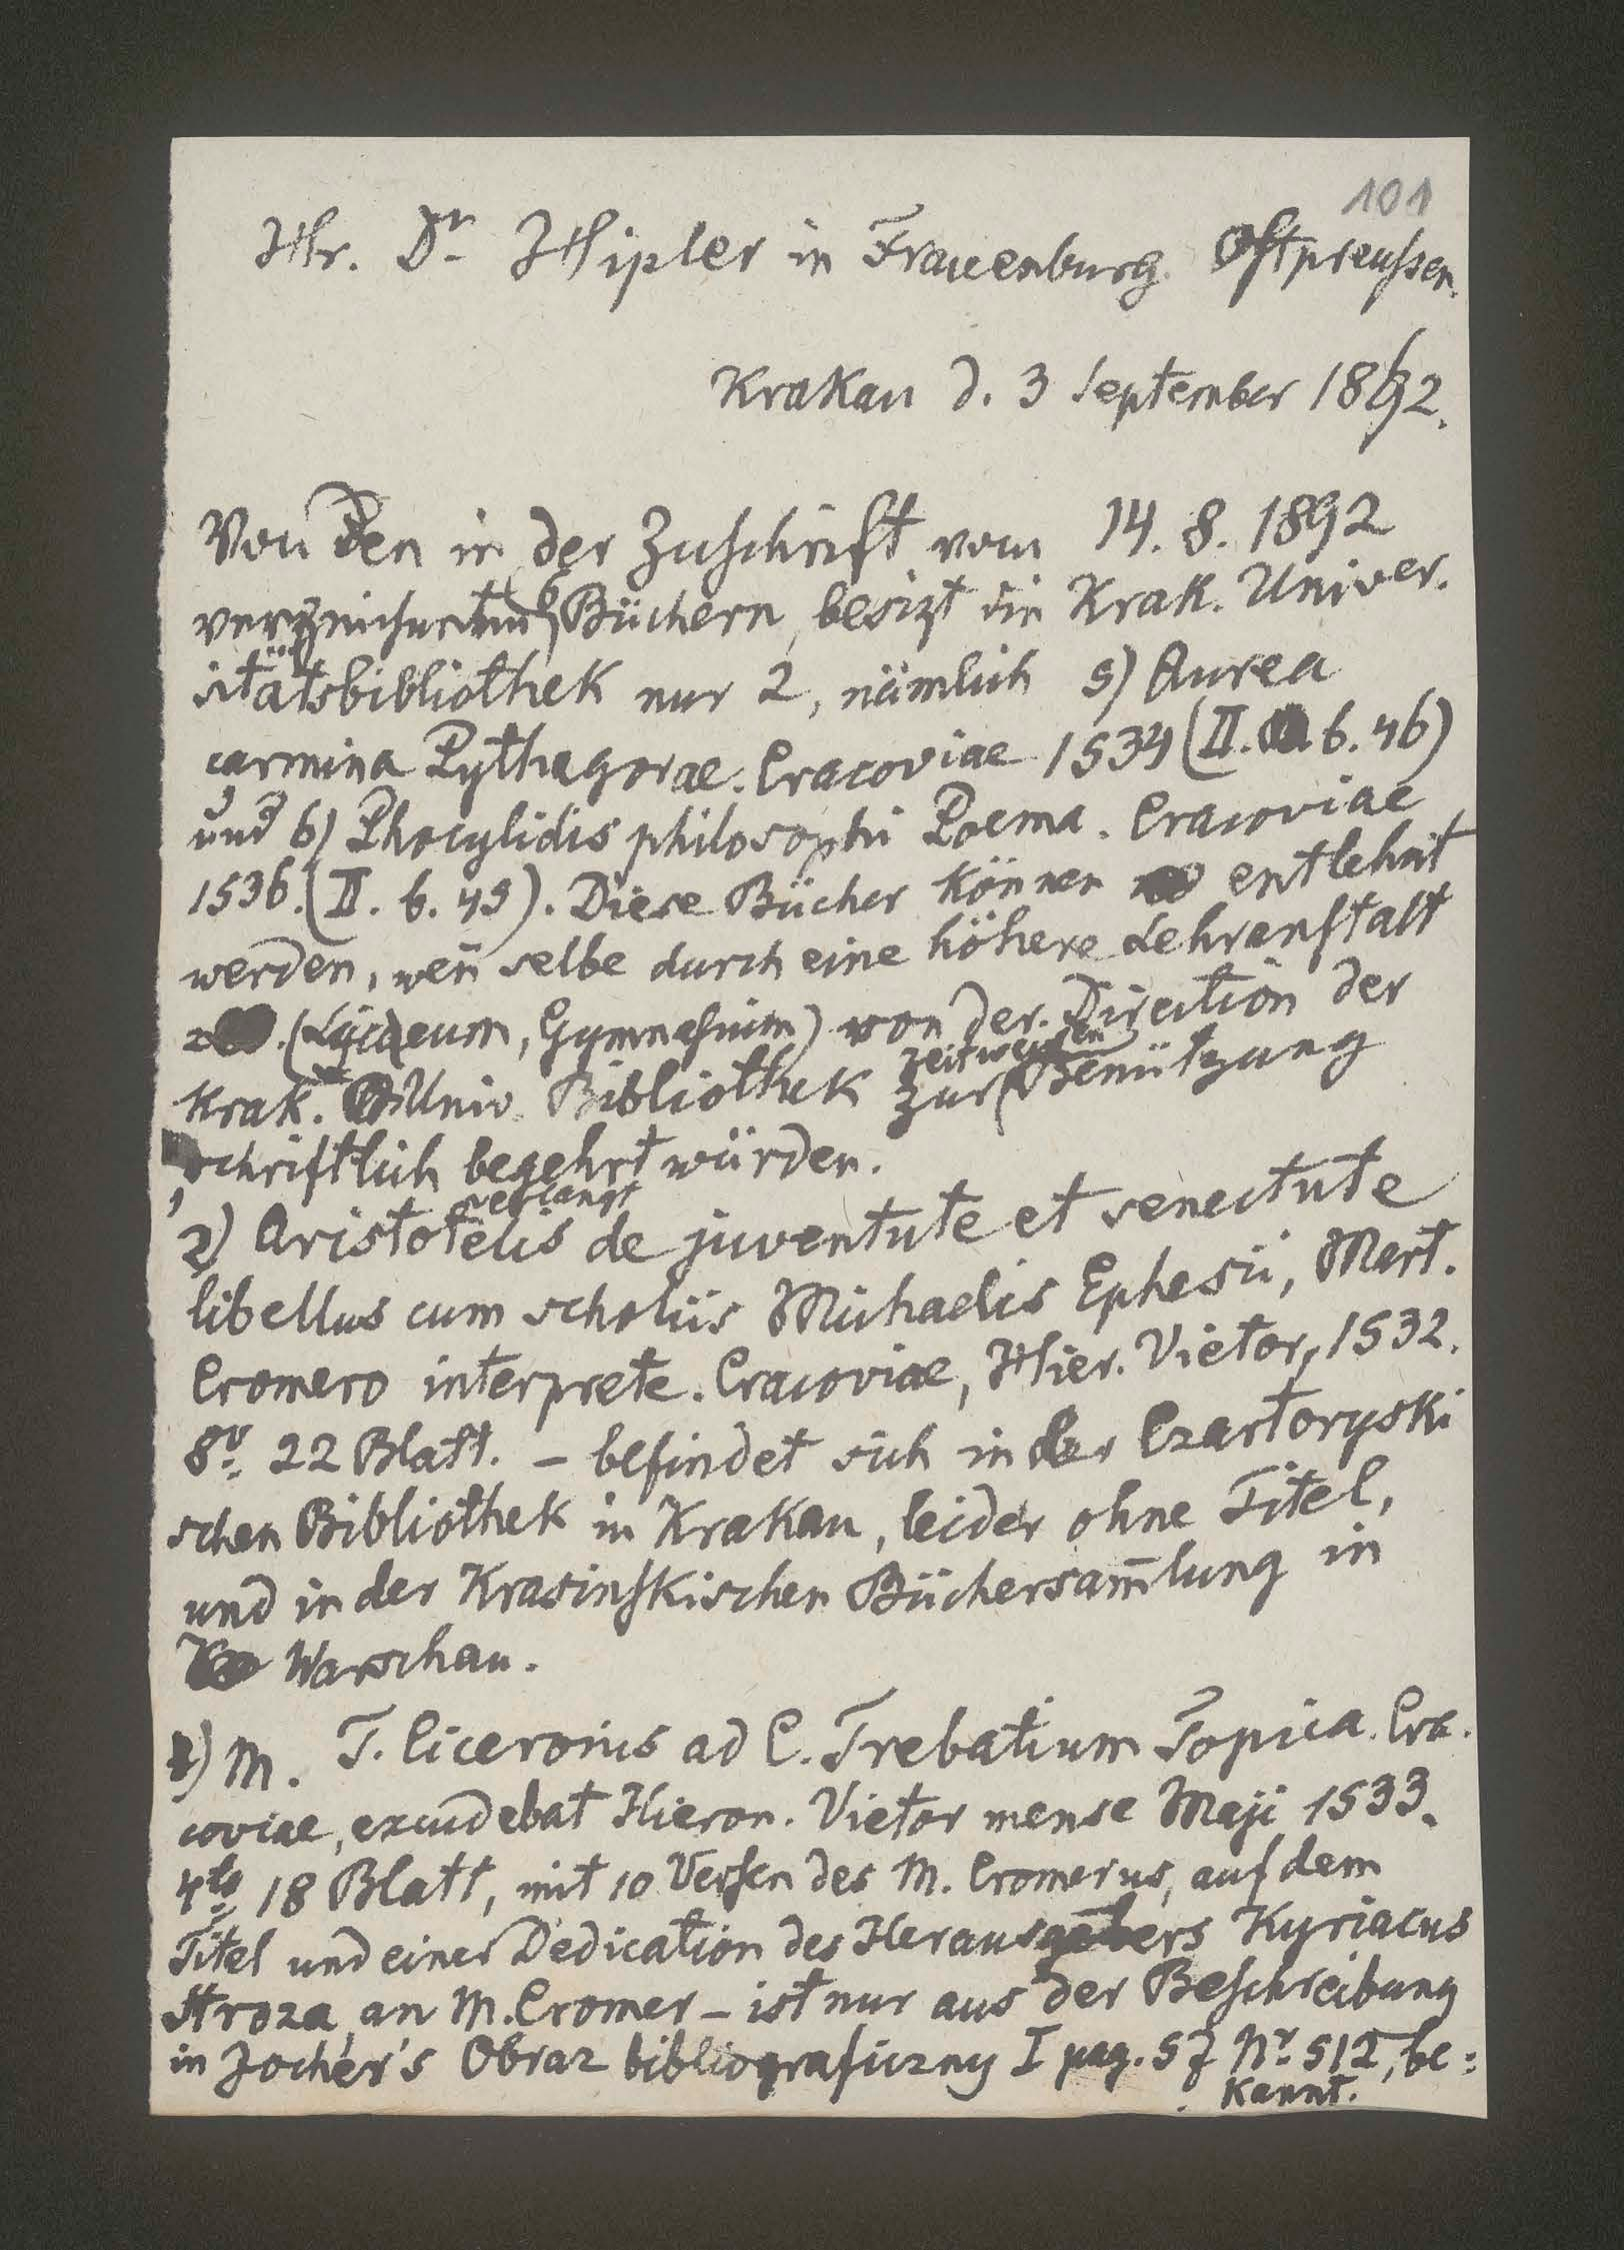 101
Hr. Dr Hipler in Frauenburg. Ostpreußen.
Krakau d. 3 September 1892.
Von den in der Zuschrift vom 14. 8. 1892
verzeichneten 6 Büchern, besizt die Krak. Univer.
sitätsbibliothek nur 2, nämlich 5) Aurea
carmina Pythagorae. Cracoviae 1534 (II. b. 46)
und 6) Phocylidis philosophi Poema. Cracoviae
1536. (II. b. 49). Diese Bücher können entlehnt
werden, wen̄ selbe durch eine höhere Lehranstalt
(Lycaeum, Gymnasium) von der Direction der
zeitweisen
Krak. Univ. Bibliothek zur Benützung
schriftlich begehrt würden.
verlangt
2) Aristotelis de juventute et senectute
libellus cum scholiis Michaelis Ephesii, Mart.
Cromero interprete. Cracoviae, Hier. Vietor, 1532.
8v. 22 Blatt. – befindet sich in der Czartoryski
schen Bibliothek in Krakau, leider ohne Titel,
und in der Krasinskischen Büchersam̄lung in
Warschau.
1) M. T. Ciceronis ad C. Trebatium Topica. Cra.
coviae, excudebat Hieron. Vietor mense Maji 1533.
4to 18 Blatt, mit 10 Versen des M. Cromerus, auf dem
Titel und einer Dedication des Herausgebers Kyriacus
Stroza, an M. Cromer – ist nur aus der Beschreibung
in Jochér's Obraz bibliograficzny I pag. 57 Nr. 512, be=
kannt.